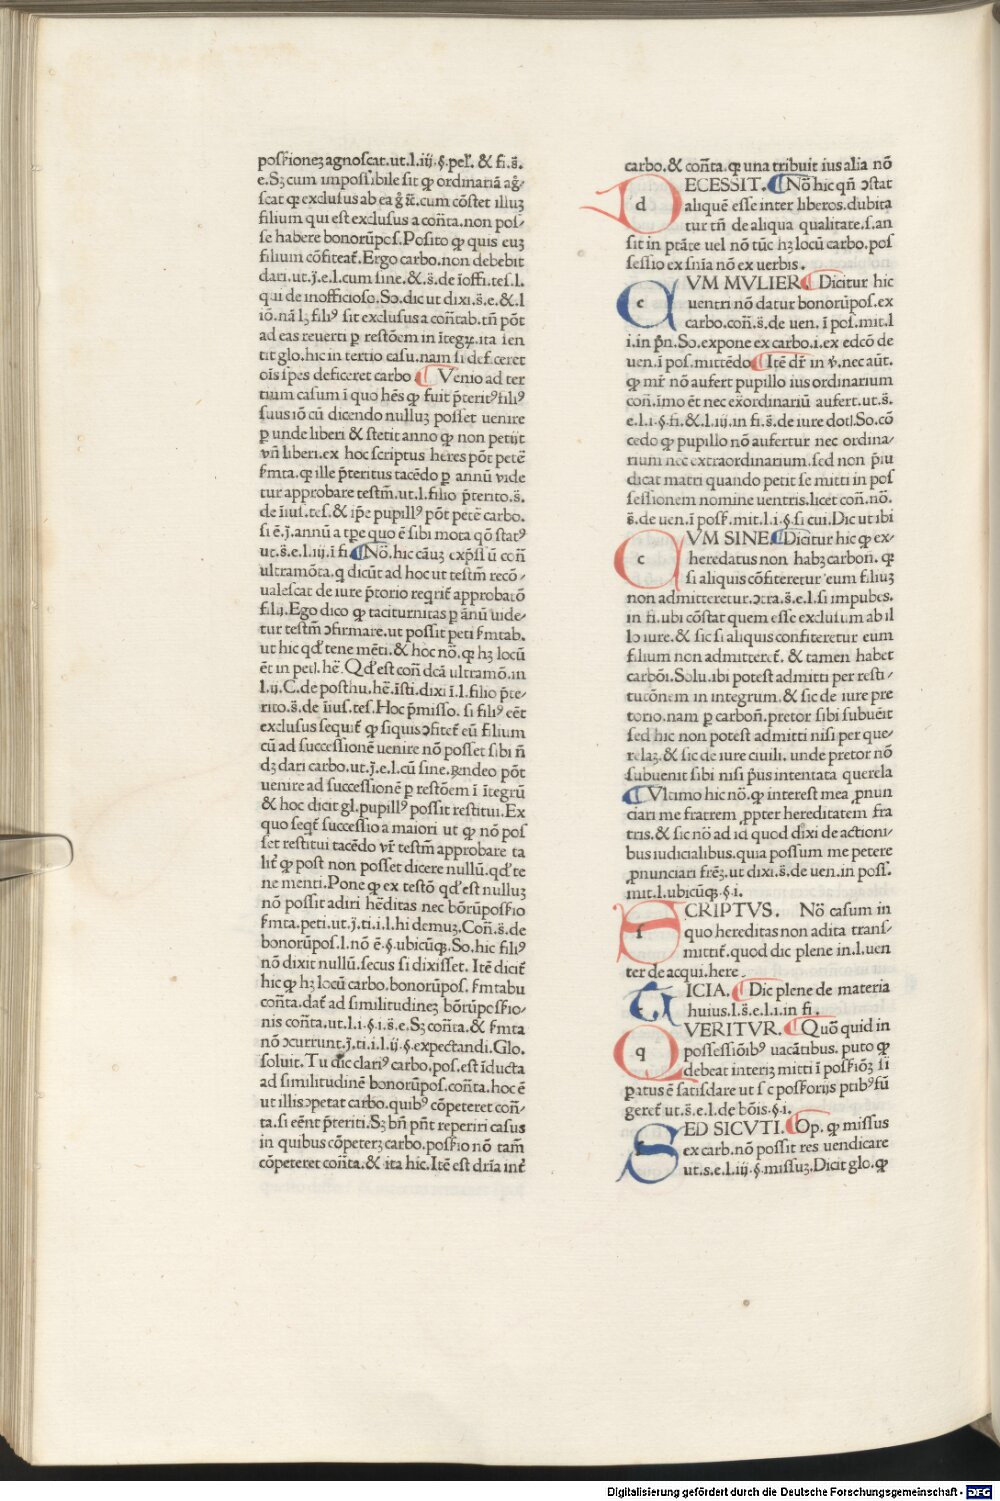 possionez agnoscat.ut.l.iij.§.pel̃. & fi.s̃.
e.Sꝫ cum impossibile sit ꝙ ordinariã ag̃r
scat ꝙ exclusus ab ea g̃r̃.cum cõstet illuꝫ
filium qui est exclusus a con̄ta.non pos/
se habere bonorũpos.Posito ꝙ quis euꝫ
filium cõfiteat̃.Ergo carbo.non debebit
dari.ut.j̃.e.l.cum sine.& s̃.de ĩoffi.tes.l.
qui de inofficioso.So.dic ut dixi.s̃.e.&.l
iõ.nã lꝫ filiꝰ sit exclusus a con̄tab.tñ põt
ad eas reuerti ꝑ restõem in ĩtegꝝ.ita sen
tit glo.hic in tertio casu.nam si deficeret
oĩs spes deficeret carbo ¶ Venio ad ter
tium casum ĩ quo hẽs ꝙ fuit p̃teritꝰ filiꝰ
suus iõ cũ dicendo nulluꝫ posset uenire
ꝑ unde liberi & stetit anno ꝙ non petijt
vñ liberi.ex hoc scriptus heres põt petẽ
f̃mta.ꝙ ille p̃teritus tacẽdo ꝑ annũ vide
tur approbare testm̃.ut.l.filio p̃terito.s̃.
de ĩius.tes.& ip̃e pupillꝰ põt petẽ carbo.
si ẽ.j̃.annũ a tpe quo ẽ sibi mota qõ statꝰ
ut.s̃.e.l.iij.ĩ fi ¶ Nõ.hic cãuꝫ exp̃sſũ con̄
ultramõta.q dicũt ad hoc ut testm̃ recõ/
ualescat de iure p̃torio reqrit̃ approbatõ
filij.Ego dico ꝙ taciturnitas ꝑ ãnũ uide/
tur testm̃ ↄfirmare.ut possit peti f̃mtab.
ut hic qđ tene mẽti.& hoc nõ.ꝙ hꝫ locũ
ẽt in petl.hẽ.Qđ est con̄ dcã ultramõ.in
l.ij.C.de posthu.hẽ.ĩsti.dixi ĩ.l.filio p̃te/
rito.s̃.de ĩius.tes.Hoc p̃misso.si filiꝰ eẽt
exclusus sequit̃ ꝙ siquis ↄfitet̃ eũ filium
cũ ad successionẽ uenire nõ posset sibi ñ
dꝫ dari carbo.ut.j̃.e.l.cũ sine.Rñdeo põt
venire ad successionẽ ꝑ restõem ĩ ĩtegrũ
& hoc dicit gl.pupillꝰ possit restitui.Ex
quo seqt̃ successio a maiori ut ꝙ nõ pos
set restitui tacẽdo vr̃ testm̃ approbare ta
lit̃ ꝙ post non posset dicere nullũ.qđ te
ne menti.Pone ꝙ ex testõ qđ est nulluꝫ
nõ possit adiri hẽditas nec bõrũpossio
f̃mta.peti.ut.j̃.ti.i.l.hi demuꝫ.Con̄.s̃.de
bonorũpos.l.nõ ẽ.§.ubicũqꝫ.So.hic filiꝰ
nõ dixit nullũ.secus si dixisset. Itẽ dicit̃
hic ꝙ hꝫ locũ carbo.bonorũpos. f̃mtabu
con̄ta.dat̃ ad similitudineꝫ bõrũpossio/
nis con̄ta.ut.l.i.§.i.s̃.e.Sꝫ con̄ta.& f̃mta
nõ ↄcurrunt.j̃.ti.i.l.ij.§.expectandi.Glo.
soluit. Tu dic clariꝰ carbo.pos.est ĩducta
ad similitudinẽ bonorũpos.con̄ta.hoc ẽ
ut illis ↄpetat carbo.quibꝰ cõpeteret con̄/
ta.si eẽnt p̃teriti.Sꝫ bñ pñt reperiri casus
in quibus cõpeterꝫ carbo.possio nõ tam̃
cõpeteret con̄ta.& ita hic.Itẽ est dr̃ia int̃
carbo.& con̄ta.ꝙ una tribuit ius alia nõ
DECESSIT. ¶ Nõ hic qñ ↄstat
aliquẽ esse inter liberos.dubita
tur tñ de aliqua qualitate.s.an
sit in ptãte uel nõ tũc hꝫ locũ carbo.pos
sessio ex snĩa nõ ex uerbis.
CVM MVLIER ¶ Dicitur hic
uentri nõ datur bonorũpos.ex
carbo.con̄.s̃.de uen. ĩ pos.mit.l
i.in p̃ñ.So.expone ex carbo.i.ex edcõ de
uen.ĩ pos.mittẽdo ¶ Itẽ dr̃ in ṽ.nec aũt.
ꝙ mr̃ nõ aufert pupillo ius ordinarium
con̄.ĩmo ẽt nec exordinariũ aufert.ut.s̃.
e.l.i.§.fi.&.l.iij.in fi.s̃.de iure dotl.So.cõ
cedo ꝙ pupillo nõ aufertur nec ordina/
rium nec extraordinarium.sed non p̃iu
dicat matri quando petit se mitti in pos
sessionem nomine uentris.licet con̄.nõ.
s̃.de uen.ĩ poss.mit.l.i.§.si cui.Dic ut ibi
CVM SINE ¶ Dicitur hic ꝙ ex/
heredatus non habꝫ carbon̄. ꝙ
si aliquis cõfiteretur eum filiuꝫ
non admitteretur.ↄtra.s̃.e.l.si impubes.
in fi.ubi cõstat quem esse exclusum ab il
lo iure.& sic si aliquis confiteretur eum
filium non admitteret̃. & tamen habet
carbõi.Solu.ibi potest admitti per resti/
tucõnem in integrum.& sic de iure pre
torio.nam ꝑ carbon̄.pretor sibi subueit̃
sed hic non potest admitti nisi per que/
relaꝫ.& sic de iure ciuili. unde pretor nõ
subuenit sibi nisi p̃us intentata querela
¶ Vltimo hic nõ.ꝙ interest mea ꝓnun
ciari me fratrem ꝓpter hereditatem fra
tris.& sic nõ ad id quod dixi de actioni/
bus iudicialibus.quia possum me petere
ꝓnunciari frẽꝫ.ut dixi.s̃.de uen.in poss.
mit.l.ubicũqꝫ.§.i.
SCRIPTVS. Nõ casum in
quo hereditas non adita trans/
mittit̃.quod dic plene in.l.uen
ter de acqui.here .
TICIA. ¶ Dic plene de materia
huius.l.s̃.e.l.i.in fi .
QVERITVR. ¶ Quõ quid in
possessiõibꝰ uacãtibus. puto ꝙ
debeat interiꝫ mitti ĩ possiõꝫ si
ꝑatus ẽ satisdare ut s c possorijs ptibꝰ fũ
geret̃ ut.s̃.e.l.de bõis.§.i.
SED SICVTI. ¶ Op. ꝙ missus
ex carb.nõ possit res uendicare
ut.s.e.l.iij.§.missuꝫ.Dicit glo.ꝙ
Digitalisierung gefördert durch die Deutsche Forschungsgemeinschaft - DFG